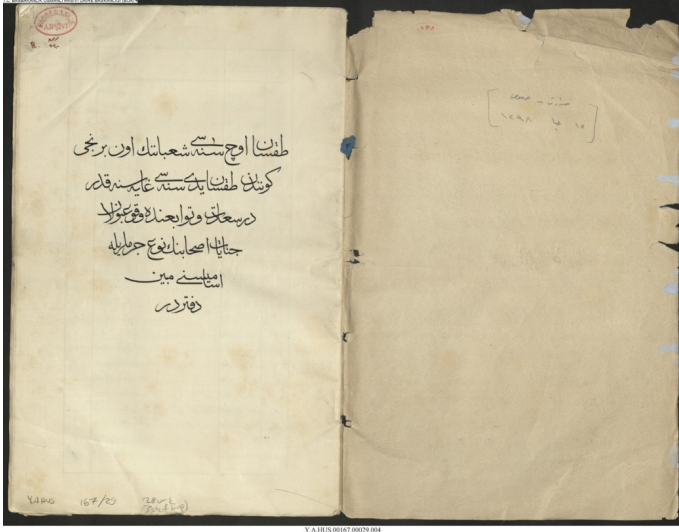 طقسان اوچ سنه‌سی شعباننك اون برنجی
كونندن طقسان یدی سنه‌سی غایه‌سنه قدر
درسعادت و توابعنده وقوعبولان
جنایات اصحابنك نوع جرملریله
اسامیسنی مبین
دفتردر
١٥ ١٢٩٨
Y.A.HUS 167/29
Y.A.HUS.00167.00029.004